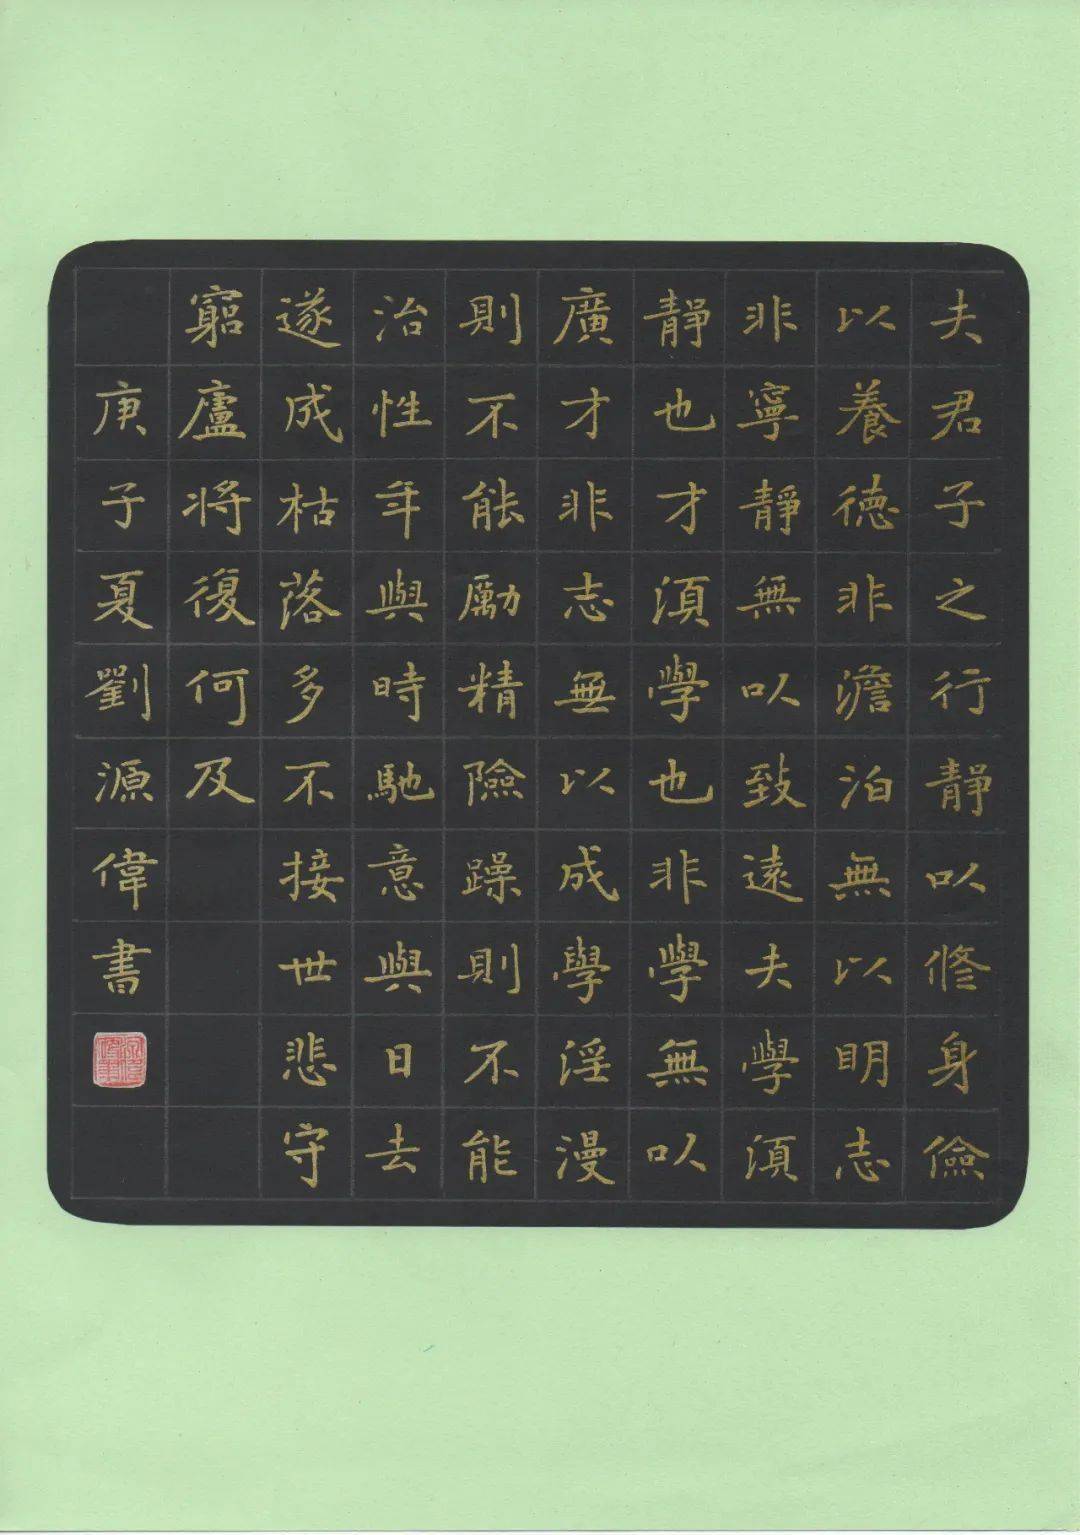 夫君子之行靜以修身儉
以養德非澹泊無以明志
非寧靜無以致遠夫學須
靜也才須學也非學無以
廣才非志無以成學淫漫
則不能勵精險躁則不能
治性年與時馳意與日去
遂成枯落多不接世悲守
窮廬將復何及
庚子夏劉源偉書